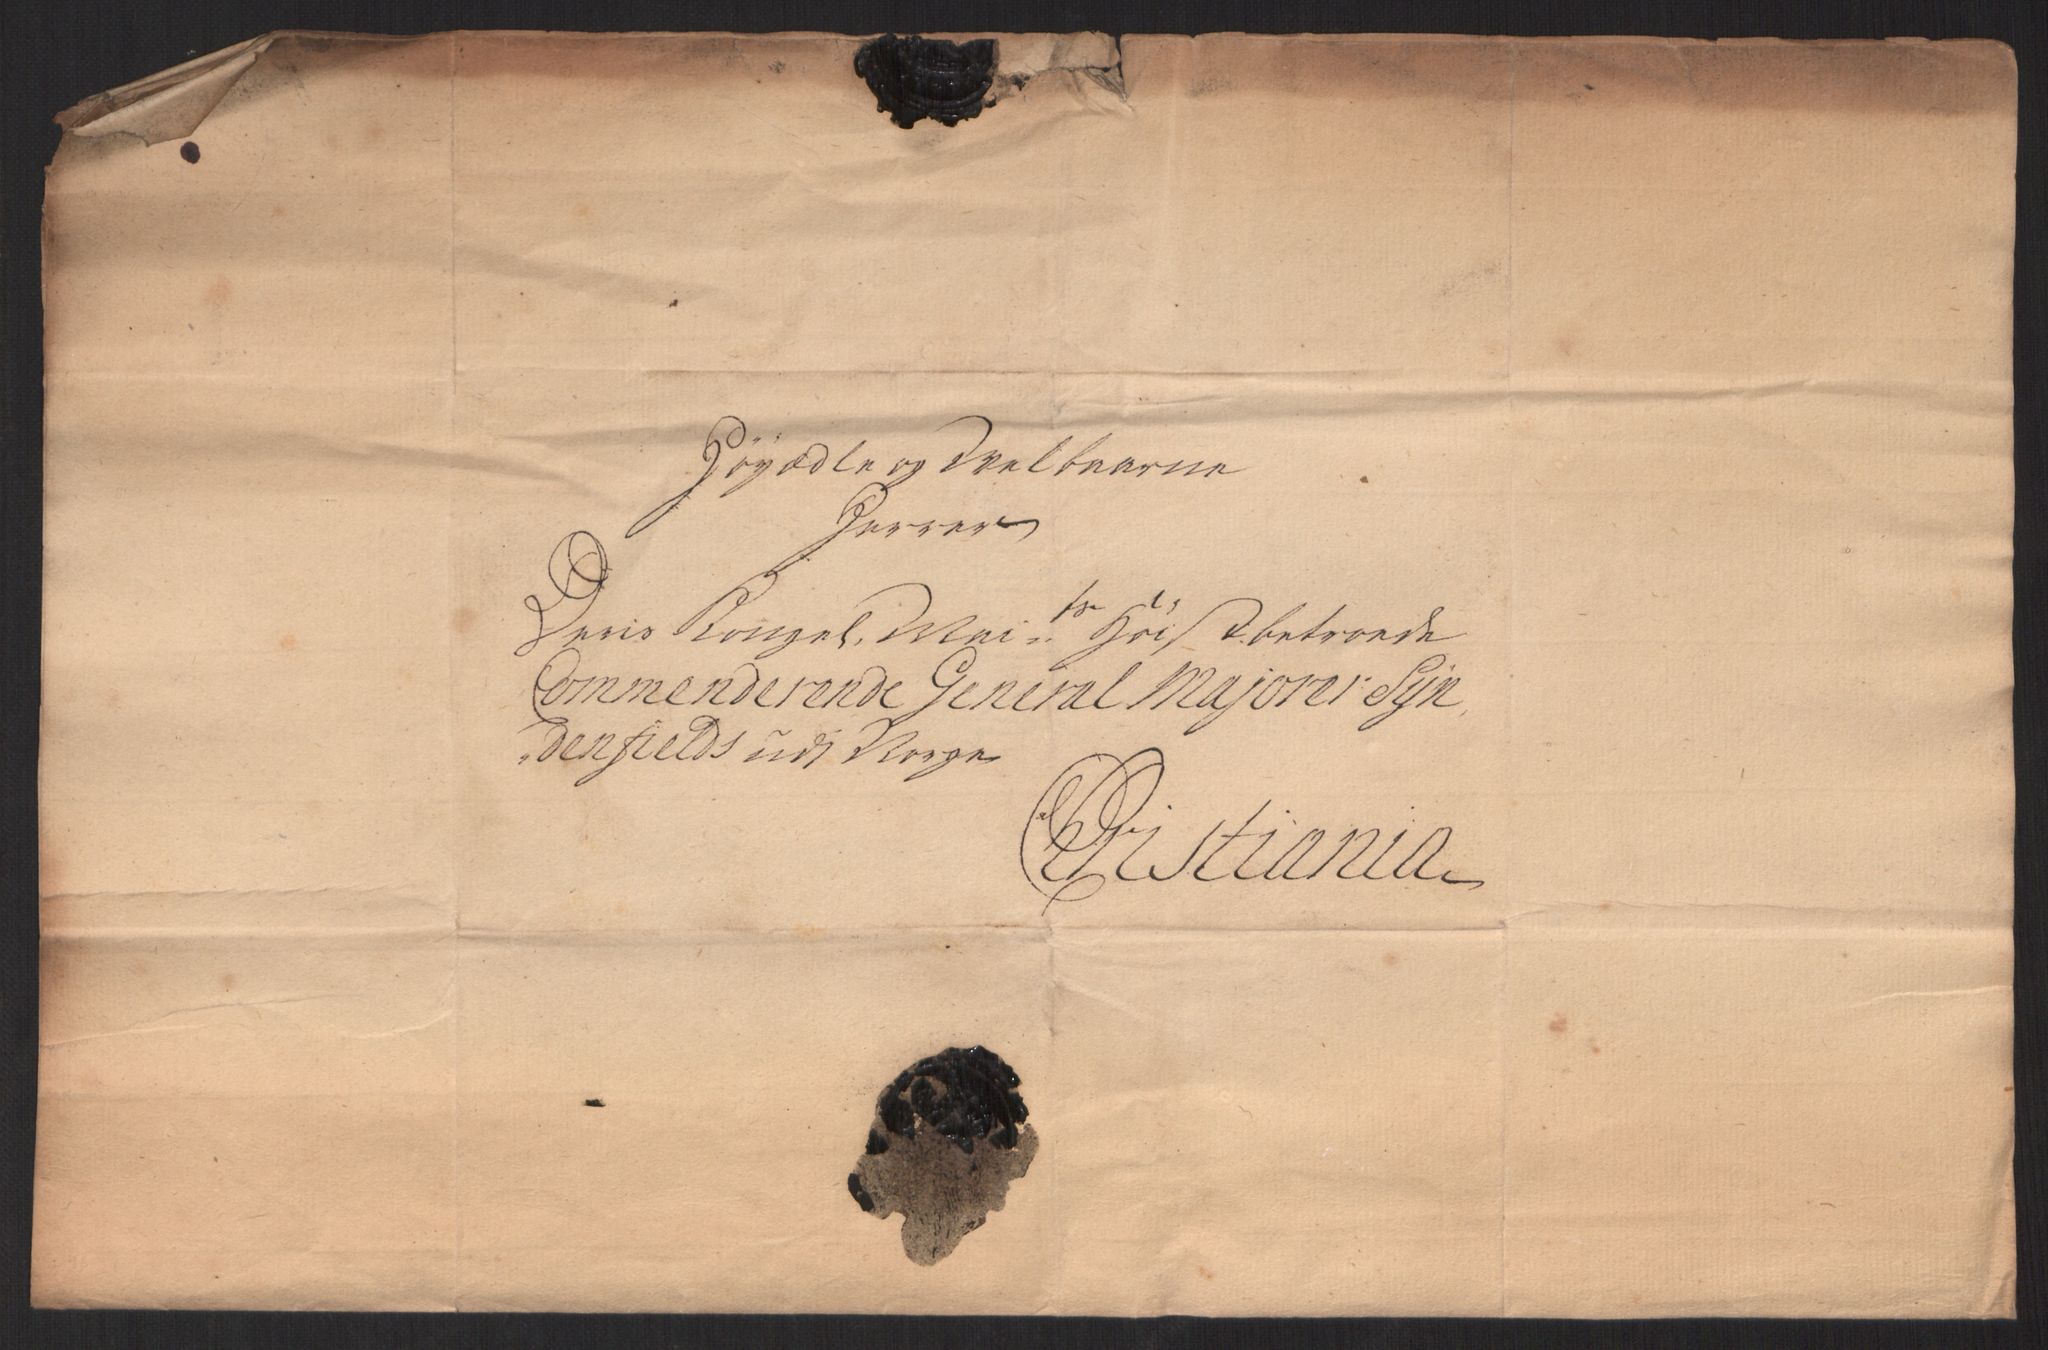 Höyædle og Velbaarne
Herrer
Deris Kongel. Mai:ts Høist betroede
Commenderende General Majorer Syn
denfields udj Norge
Christiania